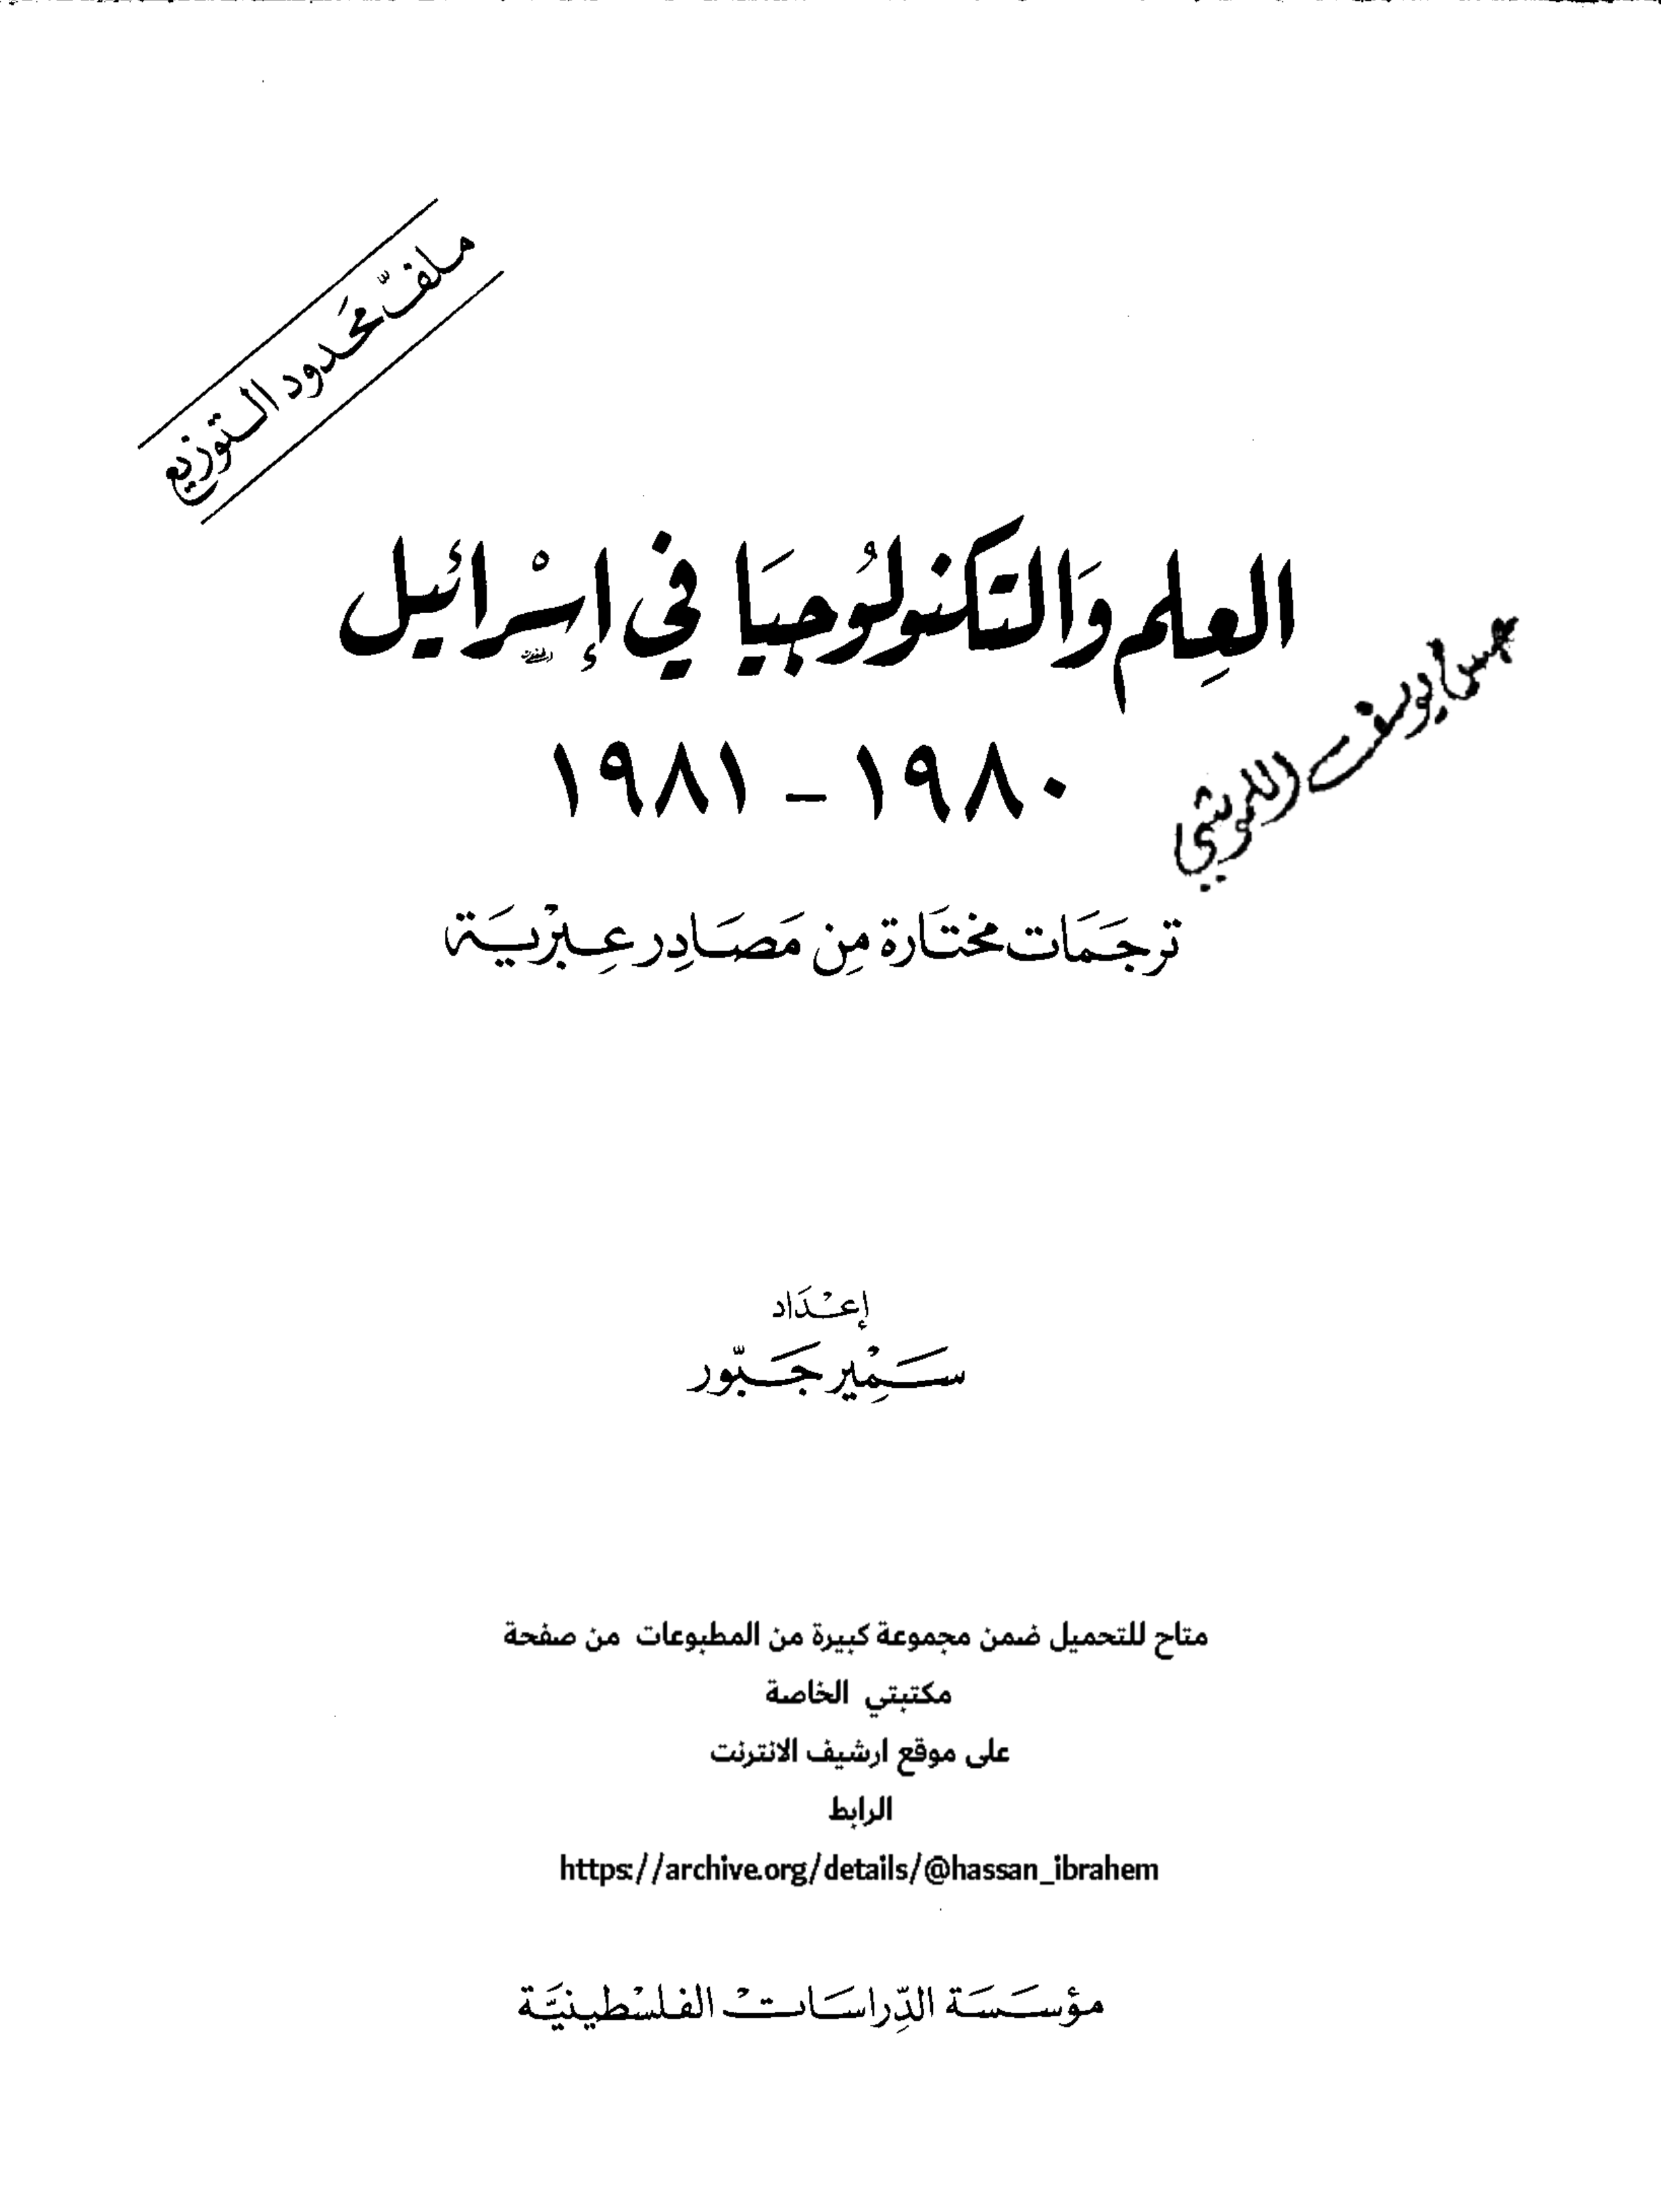 ملفّ محَدود التوزيع
العِلم وَالتكنولوُجيَا في إسْرائيل
١٩٨٠ - ١٩٨١
ترجَمَات مختَارة مِن مَصَادِر عِبْريَة
إعْدَاد
سَمِيْر جَبّور
متاح للتحميل ضمن مجموعة كبيرة من المطبوعات من صفحة
مكتبتي الخاصة
على موقع ارشيف الانترنت
الرابط
https://archive.org/details/@hassan_ibrahem
مؤسَسَة الدِّراسَات الفلسْطينيَّة